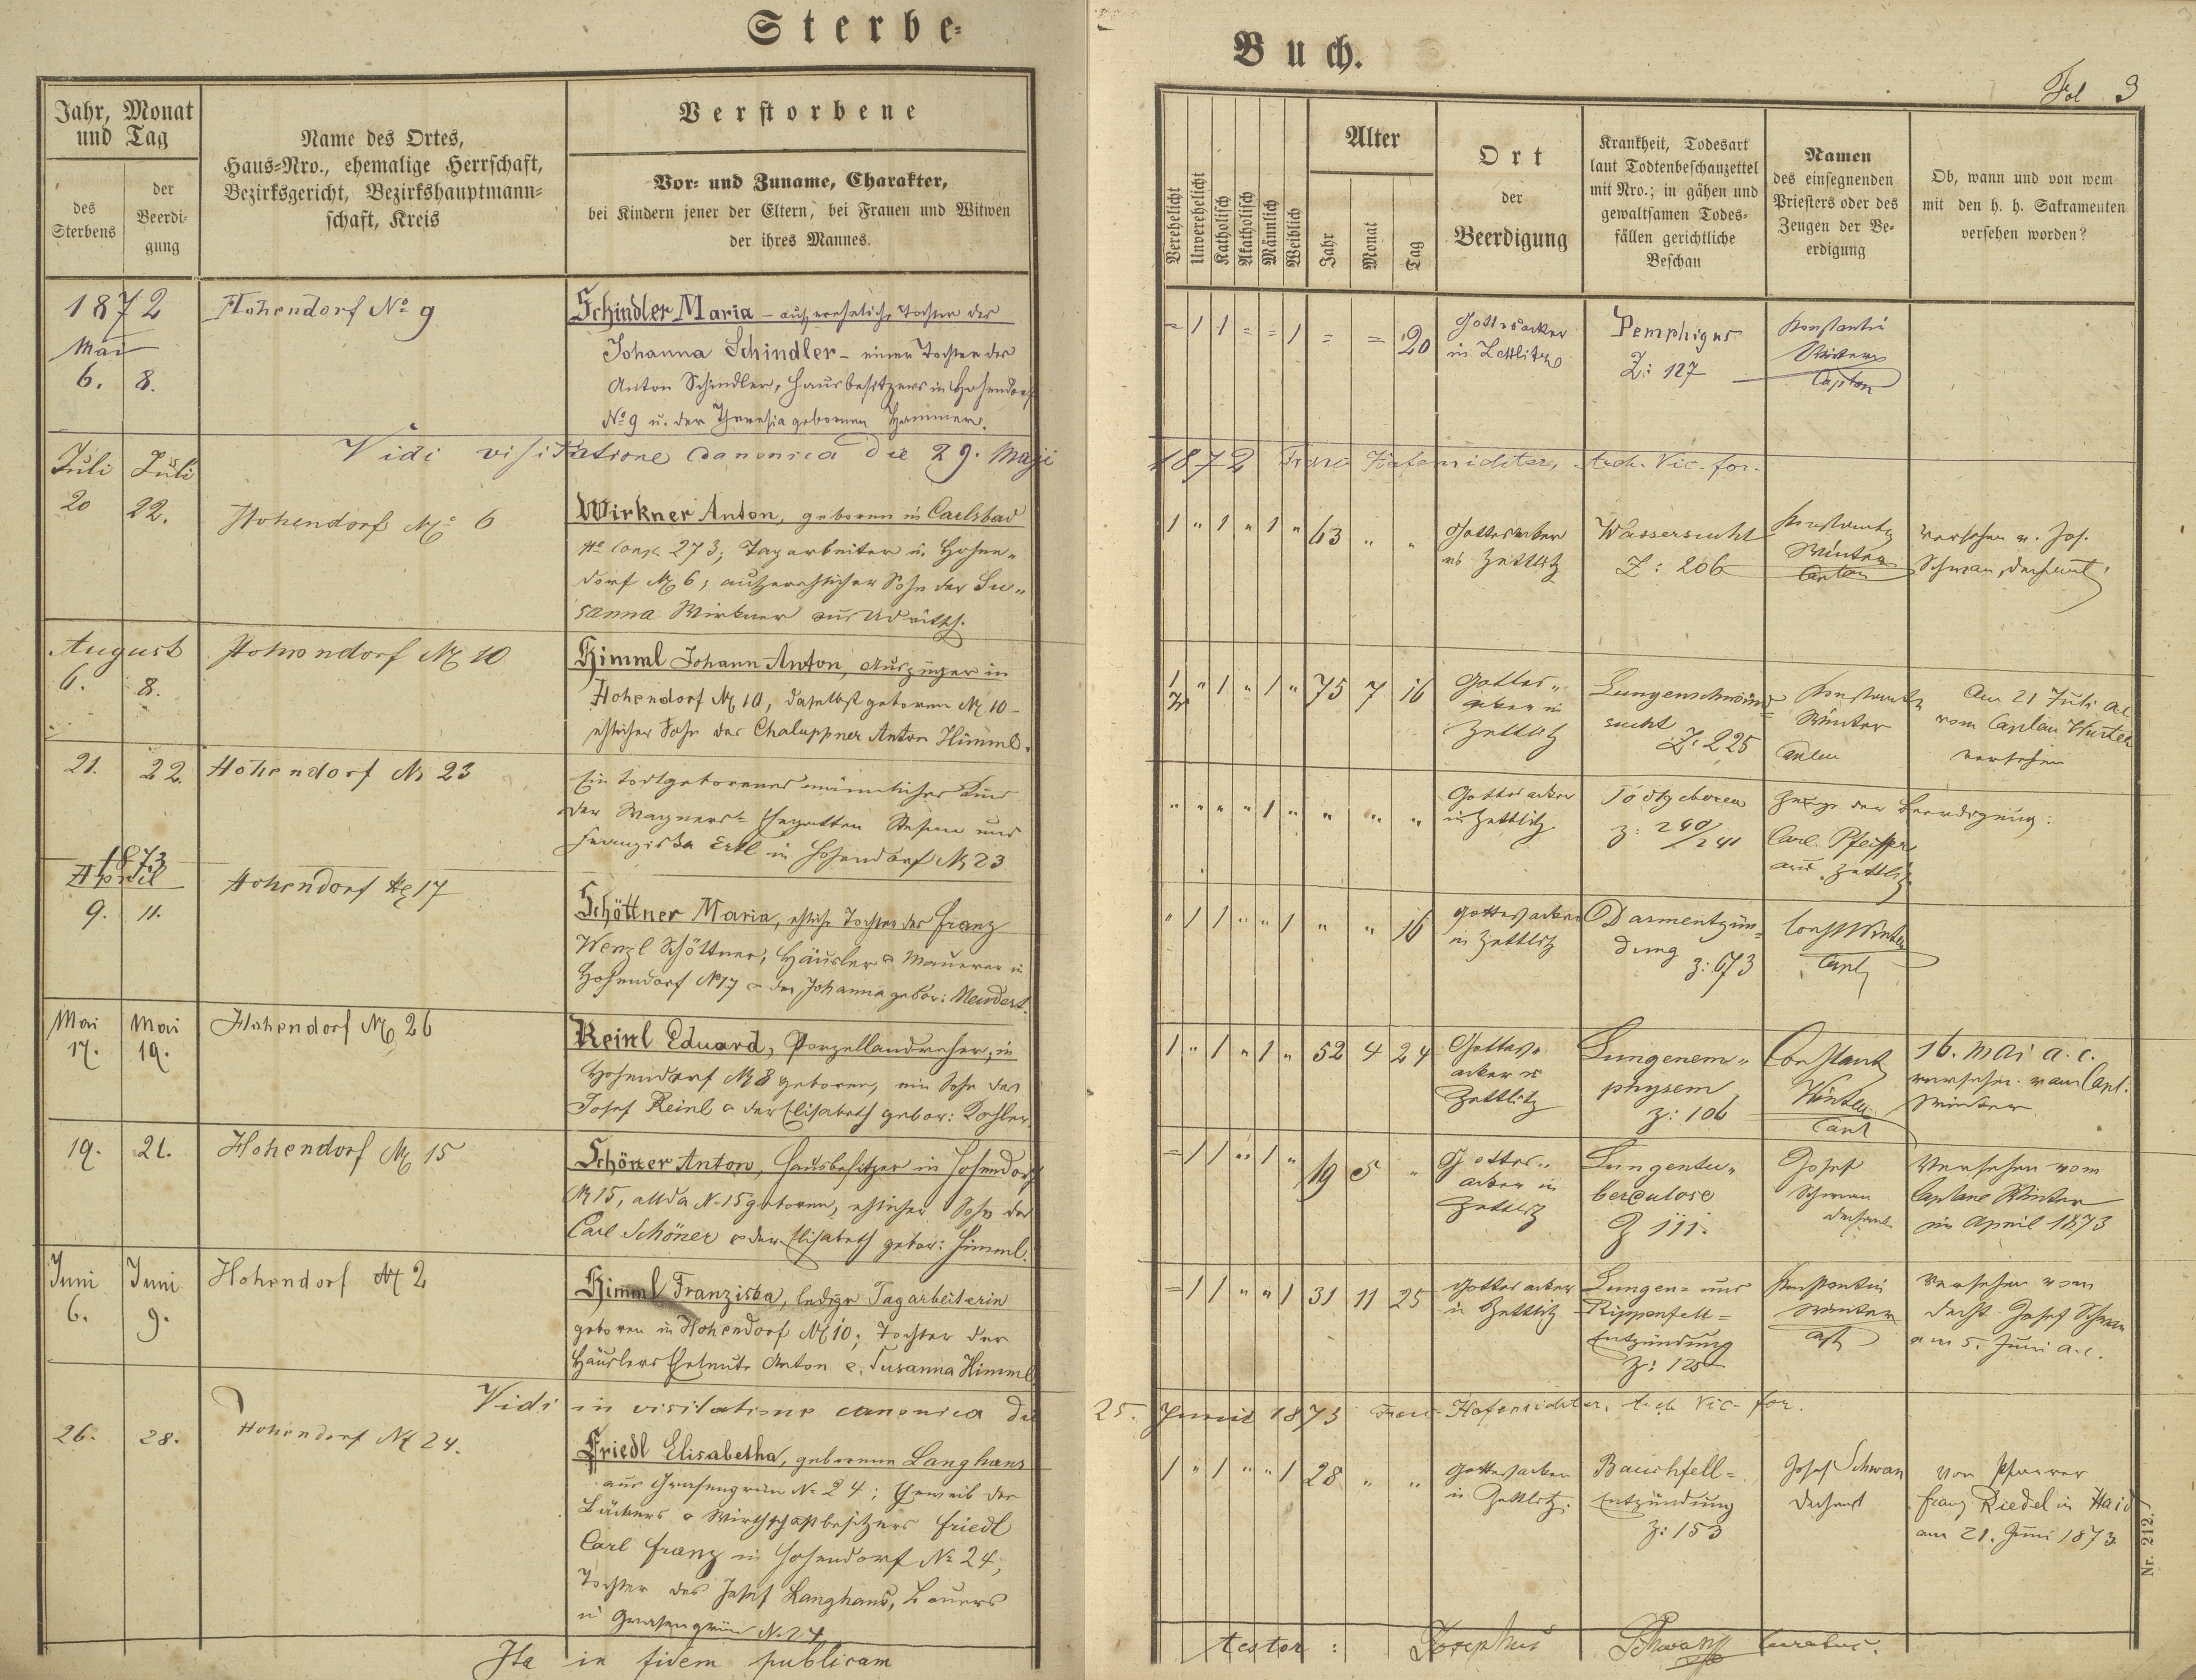 Sterbe-
Jahr, Monat
und Tag
des
Sterbens
der
Beerdi-
gung
Name des Ortes,
Haus-Nro., ehemalige Herrschaft,
Bezirksgericht, Bezirkshauptmann-
schaft, Kreis
Verstorbene
Vor- und Zuname, Charakter,
bei Kindern jener der Eltern, bei Frauen und Witwen
der ihres Mannes.
1872
Mai
6. 8.
Hohendorf No 9
Schindler Maria – außereheliche Tochter der
Johanna Schindler – einer Tochter des
Anton Schindler, Hausbesitzers in Hohendorf
No 9 u. der Theresia gebornen Hammer.
Vidi visitatione canonica die 29. Maji
Juli Juli
20 22.
Hohendorf No 6
Wirkner Anton, geboren in Carlsbad
No consc 273; Tagarbeiter in Hohen„
dorf No 6; außerehlicher Sohn der Su„
sanna Wirkner aus
August
6. 8.
Hohendorf No 10
Himml Johann Anton, Auszüger in
Hohendorf No 10, daselbst geboren No 10 –
ehlicher Sohn des Chaluppner Anton Himml.
21. 22.
Hohendorf No 23
Ein todtgeborenes männliches Kind
der Wagners- Ehegatten Stefan und
Franziska Ertl in Hohendorf No 23
1873
April
9. 11.
Hohendorf No 17
Schöttner Maria, ehliche Tochter des Franz
Wenzl Schöttner, Häusler & Maurer in
Hohendorf No 17 & der Johanna gebor: Neudert.
Mai Mai
17. 19.
Hohendorf No 26
Reinl Eduard, Porzellandreher, in
Hohendorf No 8 geboren, ein Sohn des
Josef Reinl & der Elisabeth gebor: Dohler
19. 21.
Hohendorf No 15
Schöner Anton, Hausbesitzer in Hohendorf
No 15, allda No 15 geboren, ehlicher Sohn des
Carl Schöner & der Elisabeth gebor: Himml.
Juni Juni
6. 9.
Hohendorf No 2
Himml Franziska, ledige Tagarbeiterin
geboren in Hohendorf No 10; Tochter der
Häuslers Eheleute Anton & Susanna Himml
Vidi in visitatione canonica die
26. 28.
Hohendorf No 24.
Friedl Elisabetha, geborene Langhans
aus Grasengrün No 24; Eheweib des
Bäckers & Wirthschaftbesitzers Friedl
Carl Franz in Hohendorf No 24;
Tochter des Josef Langhans, Bauers
in Grasengrün No 24
Ita in fidem publicam
Buch.
Fol 3
Verehelicht
Unverehelicht
Katholisch
Akatholisch
Männlich
Weiblich
Alter
Jahr
Monat
Tag
Ort
der
Beerdigung
Krankheit, Todesart
laut Todtenbeschauzettel
mit Nro.; in gähen und
gewaltsamen Todes-
fällen gerichtliche
Beschau
Namen
des einsegnenden
Priesters oder des
Zeugen der Be-
erdigung
Ob, wann und von wem
mit den h. h. Sakramenten
versehen worden?
= 1 1 = = 1 = = 20
Gottesacker
in Zettlitz
Pemphigus
Z: 127
Konstantin
Winter
Caplan
1872 Franz Hafenrichter, Arch. Vic. for.
1 „ 1 „ 1 „ 63 „ „
Gottesacker
in Zettlitz
Wassersucht
Z: 206
Konstantin
Winter
Caplan
versehen v. Jos.
Schwan, Dechant.
1 „ 1 „ 1 „ 75 7 16
Gottes„
acker in
Zettlitz
Lungenschwind
sucht
Z: 225
Konstantin
Winter
Caplan
Am 21 Juli a.c.
vom Caplan Winter
versehen
„ „ „ „ 1 „ „ „ „
Gottesacker
in Zettlitz.
Todtgeboren
Z: 240/241
Zeuge der Beerdigung:
Carl Pfeiffer
aus Zettlitz.
„ 1 1 „ „ 1 „ „ 16
Gottesacker
in Zettlitz
Darmentzün=
dung
Z: 673
Const Winter
Capl
1 „ 1 „ 1 „ 52 4 24
Gottes„
acker in
Zettlitz
Lungenem„
physem
Z: 106
Constant
Winter
Capl
16. Mai a. c.
versehen vom Capl.
Winter
= 1 1 „ 1 „ 19 5 „
Gottes„
acker in
Zettlitz
Lungentu„
berculose
Z 111.
Josef
Schwan
Dechant
Versehen vom
Caplane Winter
im April 1873
= 1 1 „ „ 1 31 11 25
Gottesacker
in Zettlitz
Lungen= und
Rippenfell=
Entzündung
Konstantin
Winter
Versehen vom
Decht Josef Schwan
am 5. Juni a. c.
25. Junii 1873 Franz Hafenrichter, Arch. Vic. for.
1 „ 1 „ „ 1 28 „ „
Gottesacker
in Zettlitz.
Bauchfell=
Entzündung
Z: 153
Josef Schwan
Dechant
von Pfarrer
Franz Riedel in Haid
am 21. Juni 1873
testor: Josephus Schwan curatus.
Nr. 212.